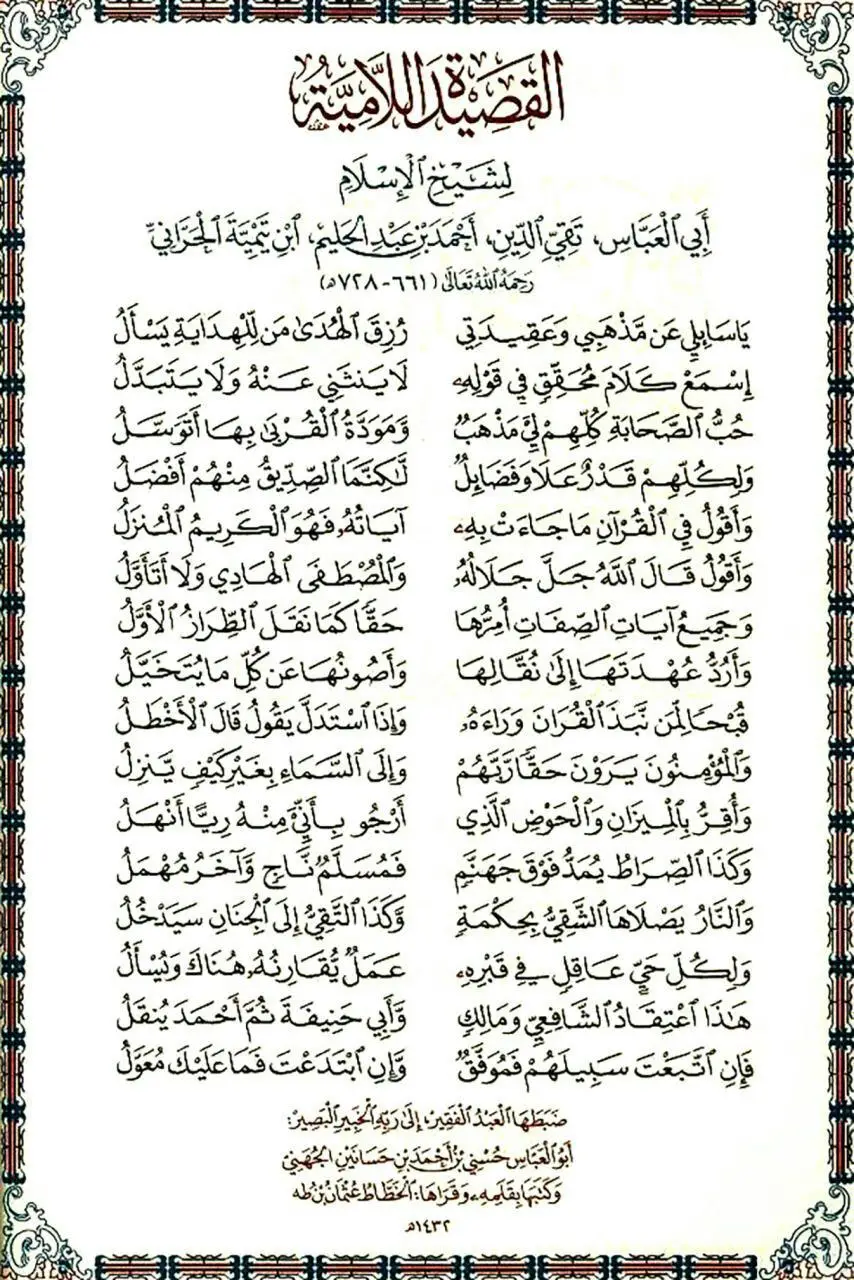 القَصِيدَةُ اللَّامِيَّةُ
لِشَيْخِ ٱلْإِسْلَامِ
أَبِي ٱلْعَبَّاسِ، تَقِيِّ ٱلدِّينِ، أَحْمَدَ بْنِ عَبْدِ ٱلْحَلِيمِ، ٱبْنِ تَيْمِيَّةَ ٱلْحَرَّانِيِّ
رَحِمَهُ ٱللَّهُ تَعَالَى (٦٦١-٧٢٨ه)
يَا سَائِلِي عَن مَّذْهَبِي وَعَقِيدَتِي رُزِقَ ٱلْهُدَىٰ مَن لِّلْهِدَايَةِ يَسْأَلُ
إِسْمَعْ كَلَامَ مُحَقِّقٍ فِي قَوْلِهِۦ لَا يَنثَنِي عَنْهُ وَلَا يَتَبَدَّلُ
حُبُّ ٱلصَّحَابَةِ كُلِّهِمْ لِي مَذْهَبٌ وَمَوَدَّةُ ٱلْقُرْبَىٰ بِهَا أَتَوَسَّلُ
وَلِكُلِّهِمْ قَدْرٌ عَلَا وَفَضَائِلٌ لَّٰكِنَّمَا ٱلصِّدِّيقُ مِنْهُمْ أَفْضَلُ
وَأَقُولُ فِي ٱلْقُرْآنِ مَا جَاءَتْ بِهِۦ آيَاتُهُۥ فَهُوَ ٱلْكَرِيمُ ٱلْمُنزَلُ
وَأَقُولُ قَالَ ٱللَّهُ جَلَّ جَلَالُهُۥ وَٱلْمُصْطَفَى ٱلْهَادِي وَلَا أَتَأَوَّلُ
وَجَمِيعُ آيَاتِ ٱلصِّفَاتِ أُمِرُّهَا حَقًّا كَمَا نَقَلَ ٱلطِّرَازُ ٱلْأَوَّلُ
وَأَرُدُّ عُهْدَتَهَا إِلَىٰ نُقَّالِهَا وَأَصُونُهَا عَن كُلِّ مَا يُتَخَيَّلُ
قُبْحًا لِّمَن نَّبَذَ ٱلْقُرَانَ وَرَاءَهُۥ وَإِذَا ٱسْتَدَلَّ يَقُولُ قَالَ ٱلْأَخْطَلُ
وَٱلْمُؤْمِنُونَ يَرَوْنَ حَقًّا رَّبَّهُمْ وَإِلَى ٱلسَّمَاءِ بِغَيْرِ كَيْفٍ يَّنزِلُ
وَأُقِرُّ بِٱلْمِيزَانِ وَٱلْحَوْضِ ٱلَّذِي أَرْجُو بِأَنِّيَ مِنْهُ رِيًّا أَنْهَلُ
وَكَذَا ٱلصِّرَاطُ يُمَدُّ فَوْقَ جَهَنَّمٍ فَمُسَلَّمٌ نَّاجٍ وَّآخَرُ مُهْمَلُ
وَٱلنَّارُ يَصْلَاهَا ٱلشَّقِيُّ بِحِكْمَةٍ وَّكَذَا ٱلتَّقِيُّ إِلَى ٱلْجِنَانِ سَيَدْخُلُ
وَلِكُلِّ حَيٍّ عَاقِلٍ فِي قَبْرِهِۦ عَمَلٌ يُّقَارِنُهُۥ هُنَاكَ وَيُسْأَلُ
هَٰذَا ٱعْتِقَادُ ٱلشَّافِعِيِّ وَمَالِكٍ وَّأَبِي حَنِيفَةَ ثُمَّ أَحْمَدَ يُنقَلُ
فَإِنِ ٱتَّبَعْتَ سَبِيلَهُمْ فَمُوَفَّقٌ وَّإِنِ ٱبْتَدَعْتَ فَمَا عَلَيْكَ مُعَوَّلُ
ضَبَطَهَا ٱلْعَبْدُ ٱلْفَقِيرُ، إِلَىٰ رَبِّهِ ٱلْخَبِيرِ ٱلْبَصِيرِ:
أَبُو ٱلْعَبَّاسِ حُسْنِي بْنُ أَحْمَدَ بْنِ حَسَانَيْنِ ٱلْجُهَنِيُّ
وَكَتَبَهَا بِقَلَمِهِۦ وَقَرَأَهَا: ٱلْخَطَّاطُ عُثْمَانُ بْنُ طَهَ
١٤٣٢ه